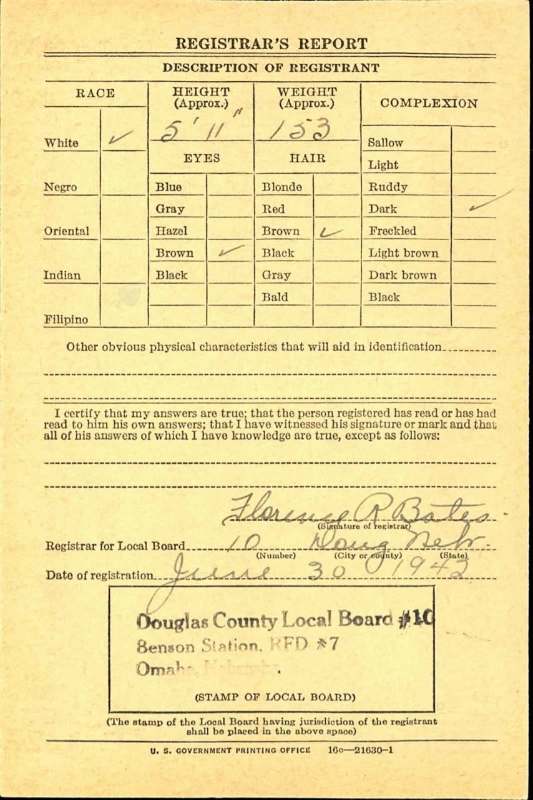 REGISTRAR'S REPORT
DESCRIPTION OF REGISTRANT
RACE
HEIGHT (Approx.)
WEIGHT (Approx.)
COMPLEXION
5' 11"
153
White ✓
EYES
HAIR
Sallow
Light
Negro
Blue
Blonde
Ruddy
Gray
Red
Dark ✓
Oriental
Hazel
Brown ✓
Freckled
Brown ✓
Black
Light brown
Indian
Black
Gray
Dark brown
Bald
Black
Filipino
Other obvious physical characteristics that will aid in identification
I certify that my answers are true; that the person registered has read or has had
read to him his own answers; that I have witnessed his signature or mark and that
all of his answers of which I have knowledge are true, except as follows:
Florence R Bates
(Signature of registrar)
Registrar for Local Board 10 Doug Nebr
(Number) (City or county) (State)
Date of registration June 30 1942
Douglas County Local Board #10
Benson Station, RFD #7
Omaha, Nebraska
(STAMP OF LOCAL BOARD)
(The stamp of the Local Board having jurisdiction of the registrant
shall be placed in the above space)
U. S. GOVERNMENT PRINTING OFFICE 16—21630-1